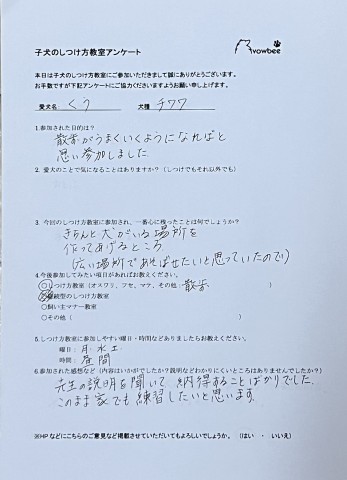 子犬のしつけ方教室アンケート
vowbee
本日は子犬のしつけ方教室にご参加いただきまして誠にありがとうございます。
お手数ですが下記アンケートにご協力くださいますようお願い申し上げます。
愛犬名 くう 犬種 チワワ
1.参加された目的は?
散歩がうまくいくようになればと
思い参加しました
2. 愛犬のことで気になることはありますか?(しつけでもそれ以外でも)
3. 今回のしつけ方教室に参加され、一番心に残ったことは何でしょうか?
きちんと犬がいる場所を
作ってあげるところ
(広い場所であそばせたいと思っていたので)
4.今後参加してみたい項目があればお教えください。
○しつけ方教室(オスワリ、フセ、マテ、その他:散歩 )
継続型のしつけ方教室
○飼い主マナー教室
○その他( )
5.しつけ方教室に参加しやすい曜日・時間などありましたらお教えください。
曜日:月 水 土
時間:昼間
6.参加された感想など(内容はいかがでしたか?説明などわかりにくいところはありませんでしたか?)
先生の説明を聞いて、納得することばかりでした。
このまま家でも練習したいと思います。
※HPなどにこちらのご意見など掲載させていただいてもよろしいでしょうか。 (はい ・ いいえ)